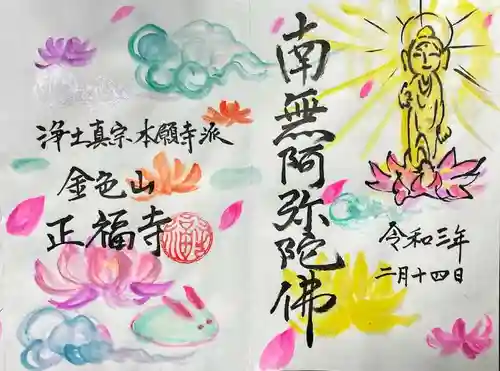 南無阿弥陀佛
令和三年
二月十四日
浄土真宗、本願寺派
金色山
正福寺